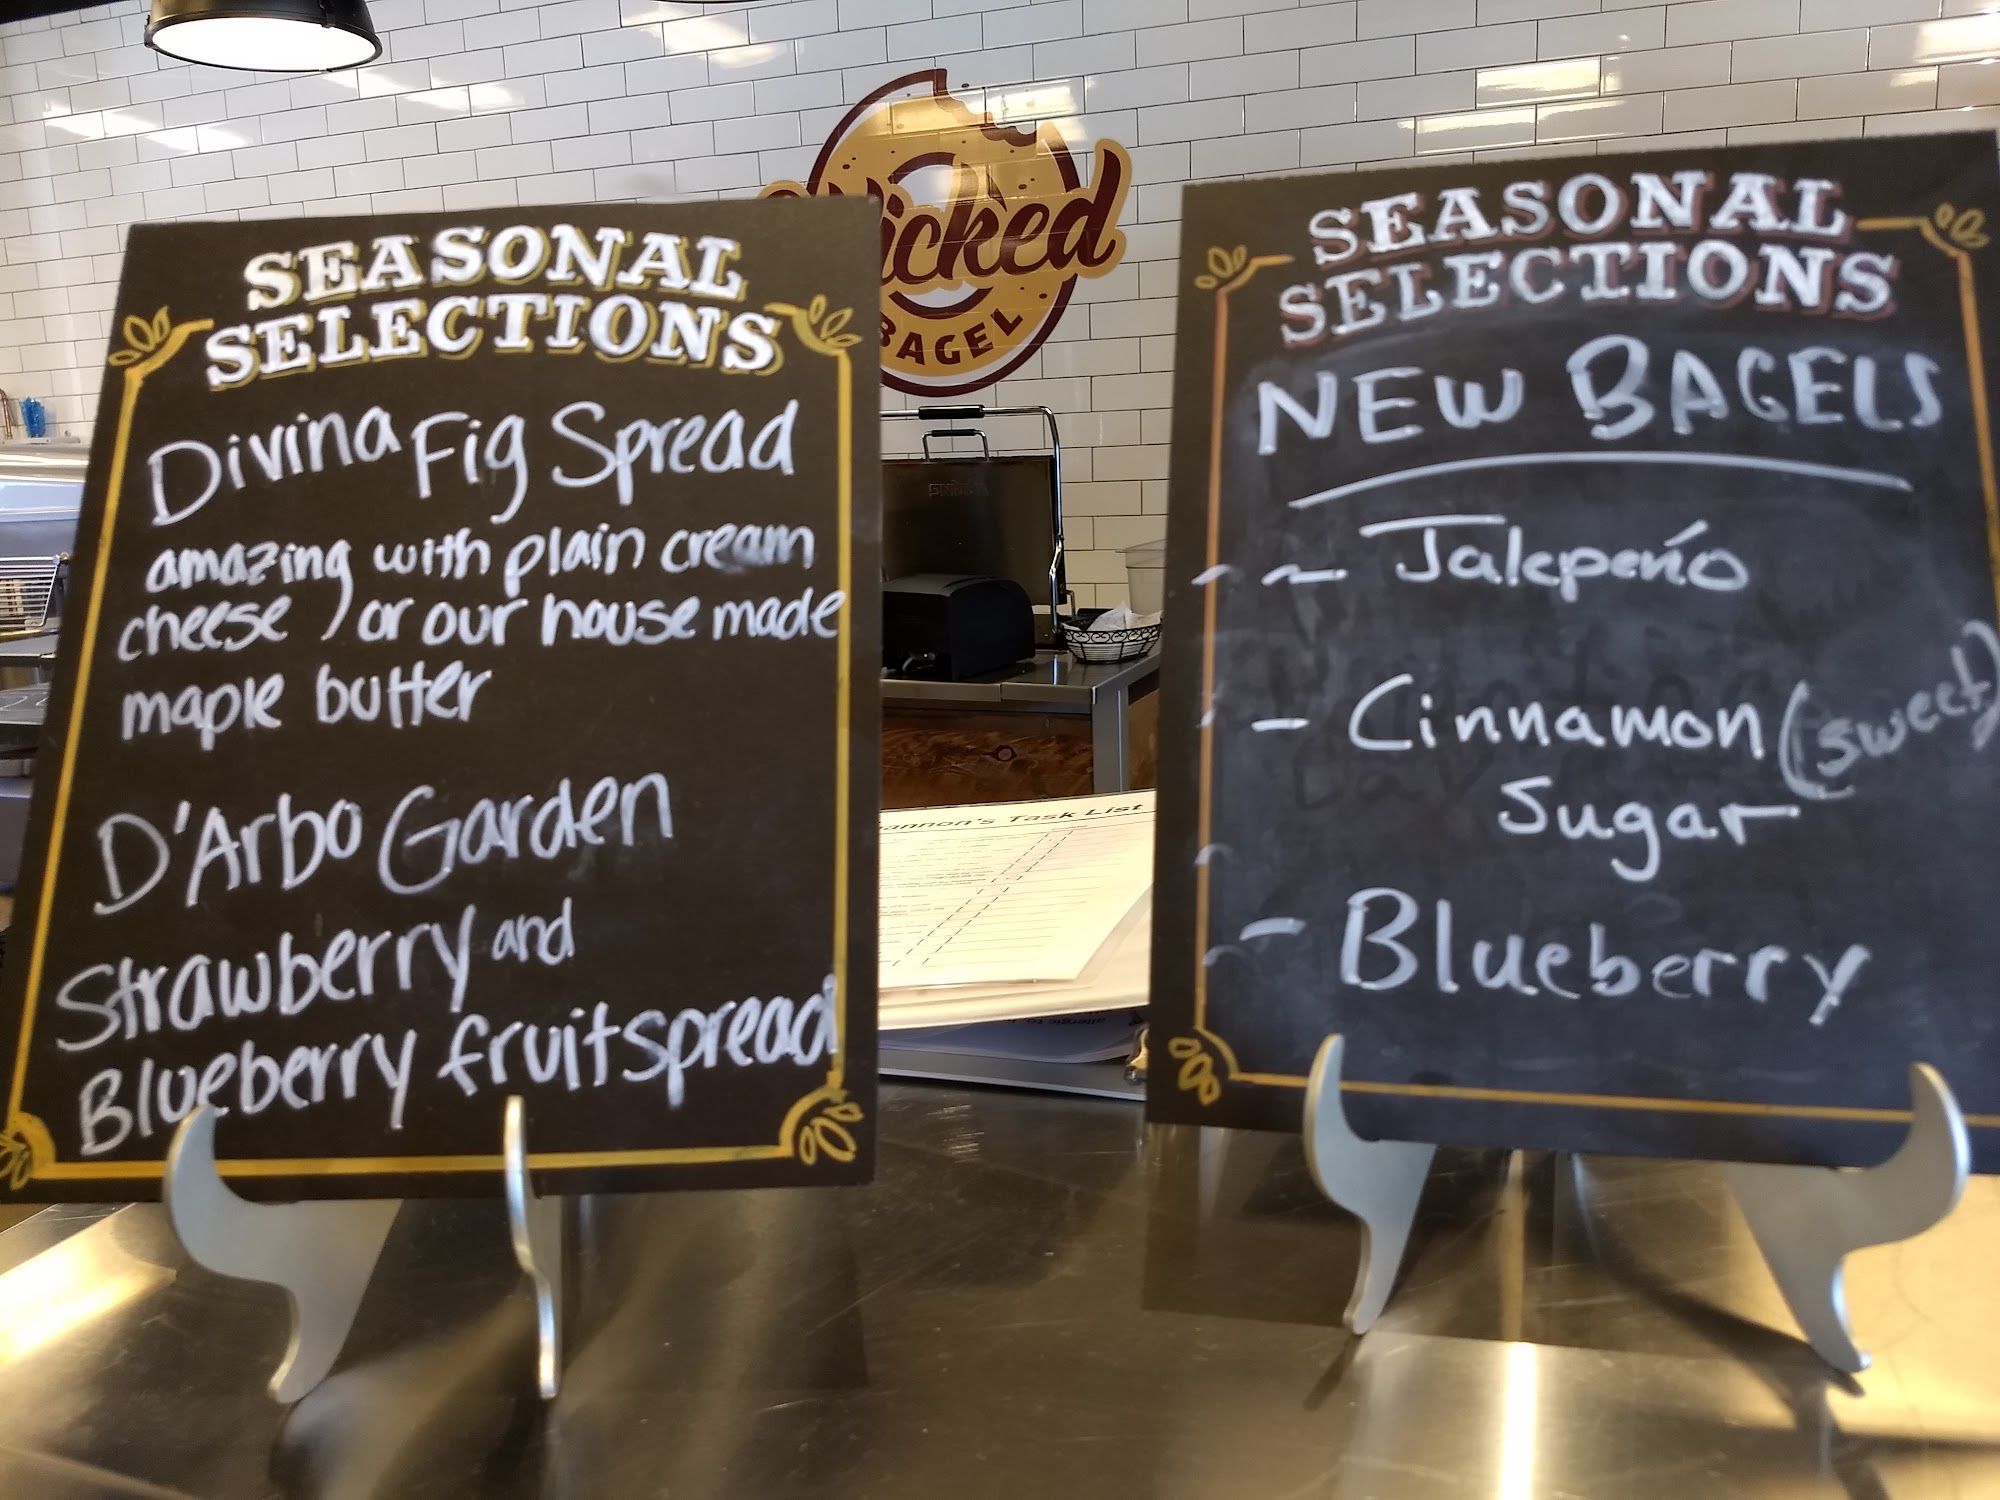 Wicked
BAGEL
SEASONAL
SELECTIONS
Divina Fig Spread
amazing with plain cream
cheese, or our house made
maple butter
D'Arbo Garden
Strawberry and
Blueberry fruit spread
SEASONAL
SELECTIONS
NEW BAGELS
~ Jalepeño
- Cinnamon (sweet)
Sugar
- Blueberry
annon's Task List